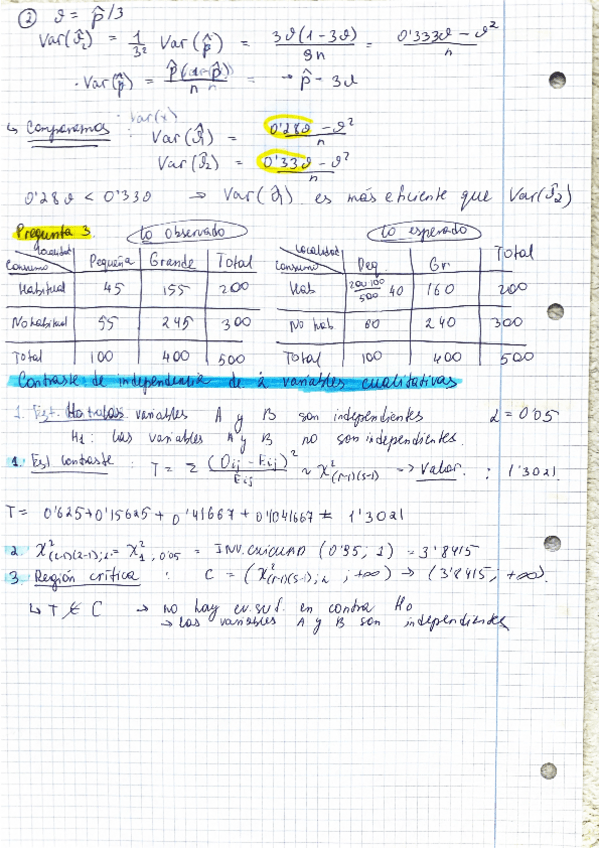 ② ϑ = p̂/3
Var(ϑ̂₂) = 1/3² Var(p̂) = 3ϑ(1-3ϑ)/9n = 0'333ϑ - ϑ²/n
· Var(p̂) = p̂(1-p̂)/n = → p̂ = 3ϑ
↳ Comparamos : Var(ϑ̂₁) = 0'28ϑ - ϑ²/n
Var(ϑ̂₂) = 0'33ϑ - ϑ²/n
0'28ϑ < 0'33ϑ ⇒ Var(ϑ̂₁) es más eficiente que Var(ϑ̂₂)
Pregunta 3. lo observado lo esperado
Consumo Localidad Pequeña Grande Total Consumo Localidad Peq. Gr. Total
Habitual 45 155 200 Hab 200·100/500 40 160 200
No habitual 55 245 300 No hab 60 240 300
Total 100 400 500 Total 100 400 500
Contraste de independencia de 2 variables cualitativas
1. Est. Ho: las variables A y B son independientes α = 0'05
H1: las variables A y B no son independientes.
1. Est contraste : T = Σ (Oij - Eij)²/Eij ~ χ²(r-1)(s-1) → Valor : 1'3021
T = 0'625 + 0'15625 + 0'41667 + 0'1041667 = 1'3021
2. χ²(2-1)(2-1);α = χ²1, 0'05 = INV.CHICUAD (0'95; 1) = 3'8415
3. Región crítica : C = (χ²(r-1)(s-1);α ; +∞) → (3'8415; +∞).
↳ T ∉ C → no hay ev. suf. en contra Ho
→ las variables A y B son independientes